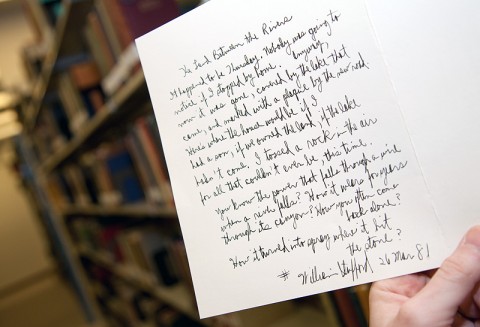 The Land Between the Rivers
It happened to be Thursday. Nobody was going to
notice if I stopped by home. Anyway,
now it was gone, covered by the lake that
came, and marked with a plaque by the new road.
Here's where the house would be if I
had a son, if we owned the land, if the lake
hadn't come. I tossed a rock in the air
for all that couldn't ever be, this time.
You know the power that falls through a
when a river falls? How it wears for years
through its canyon? How you often come
back alone?
How it turned into spray where it hit
the stone?
# William Stafford 26 Mar 81